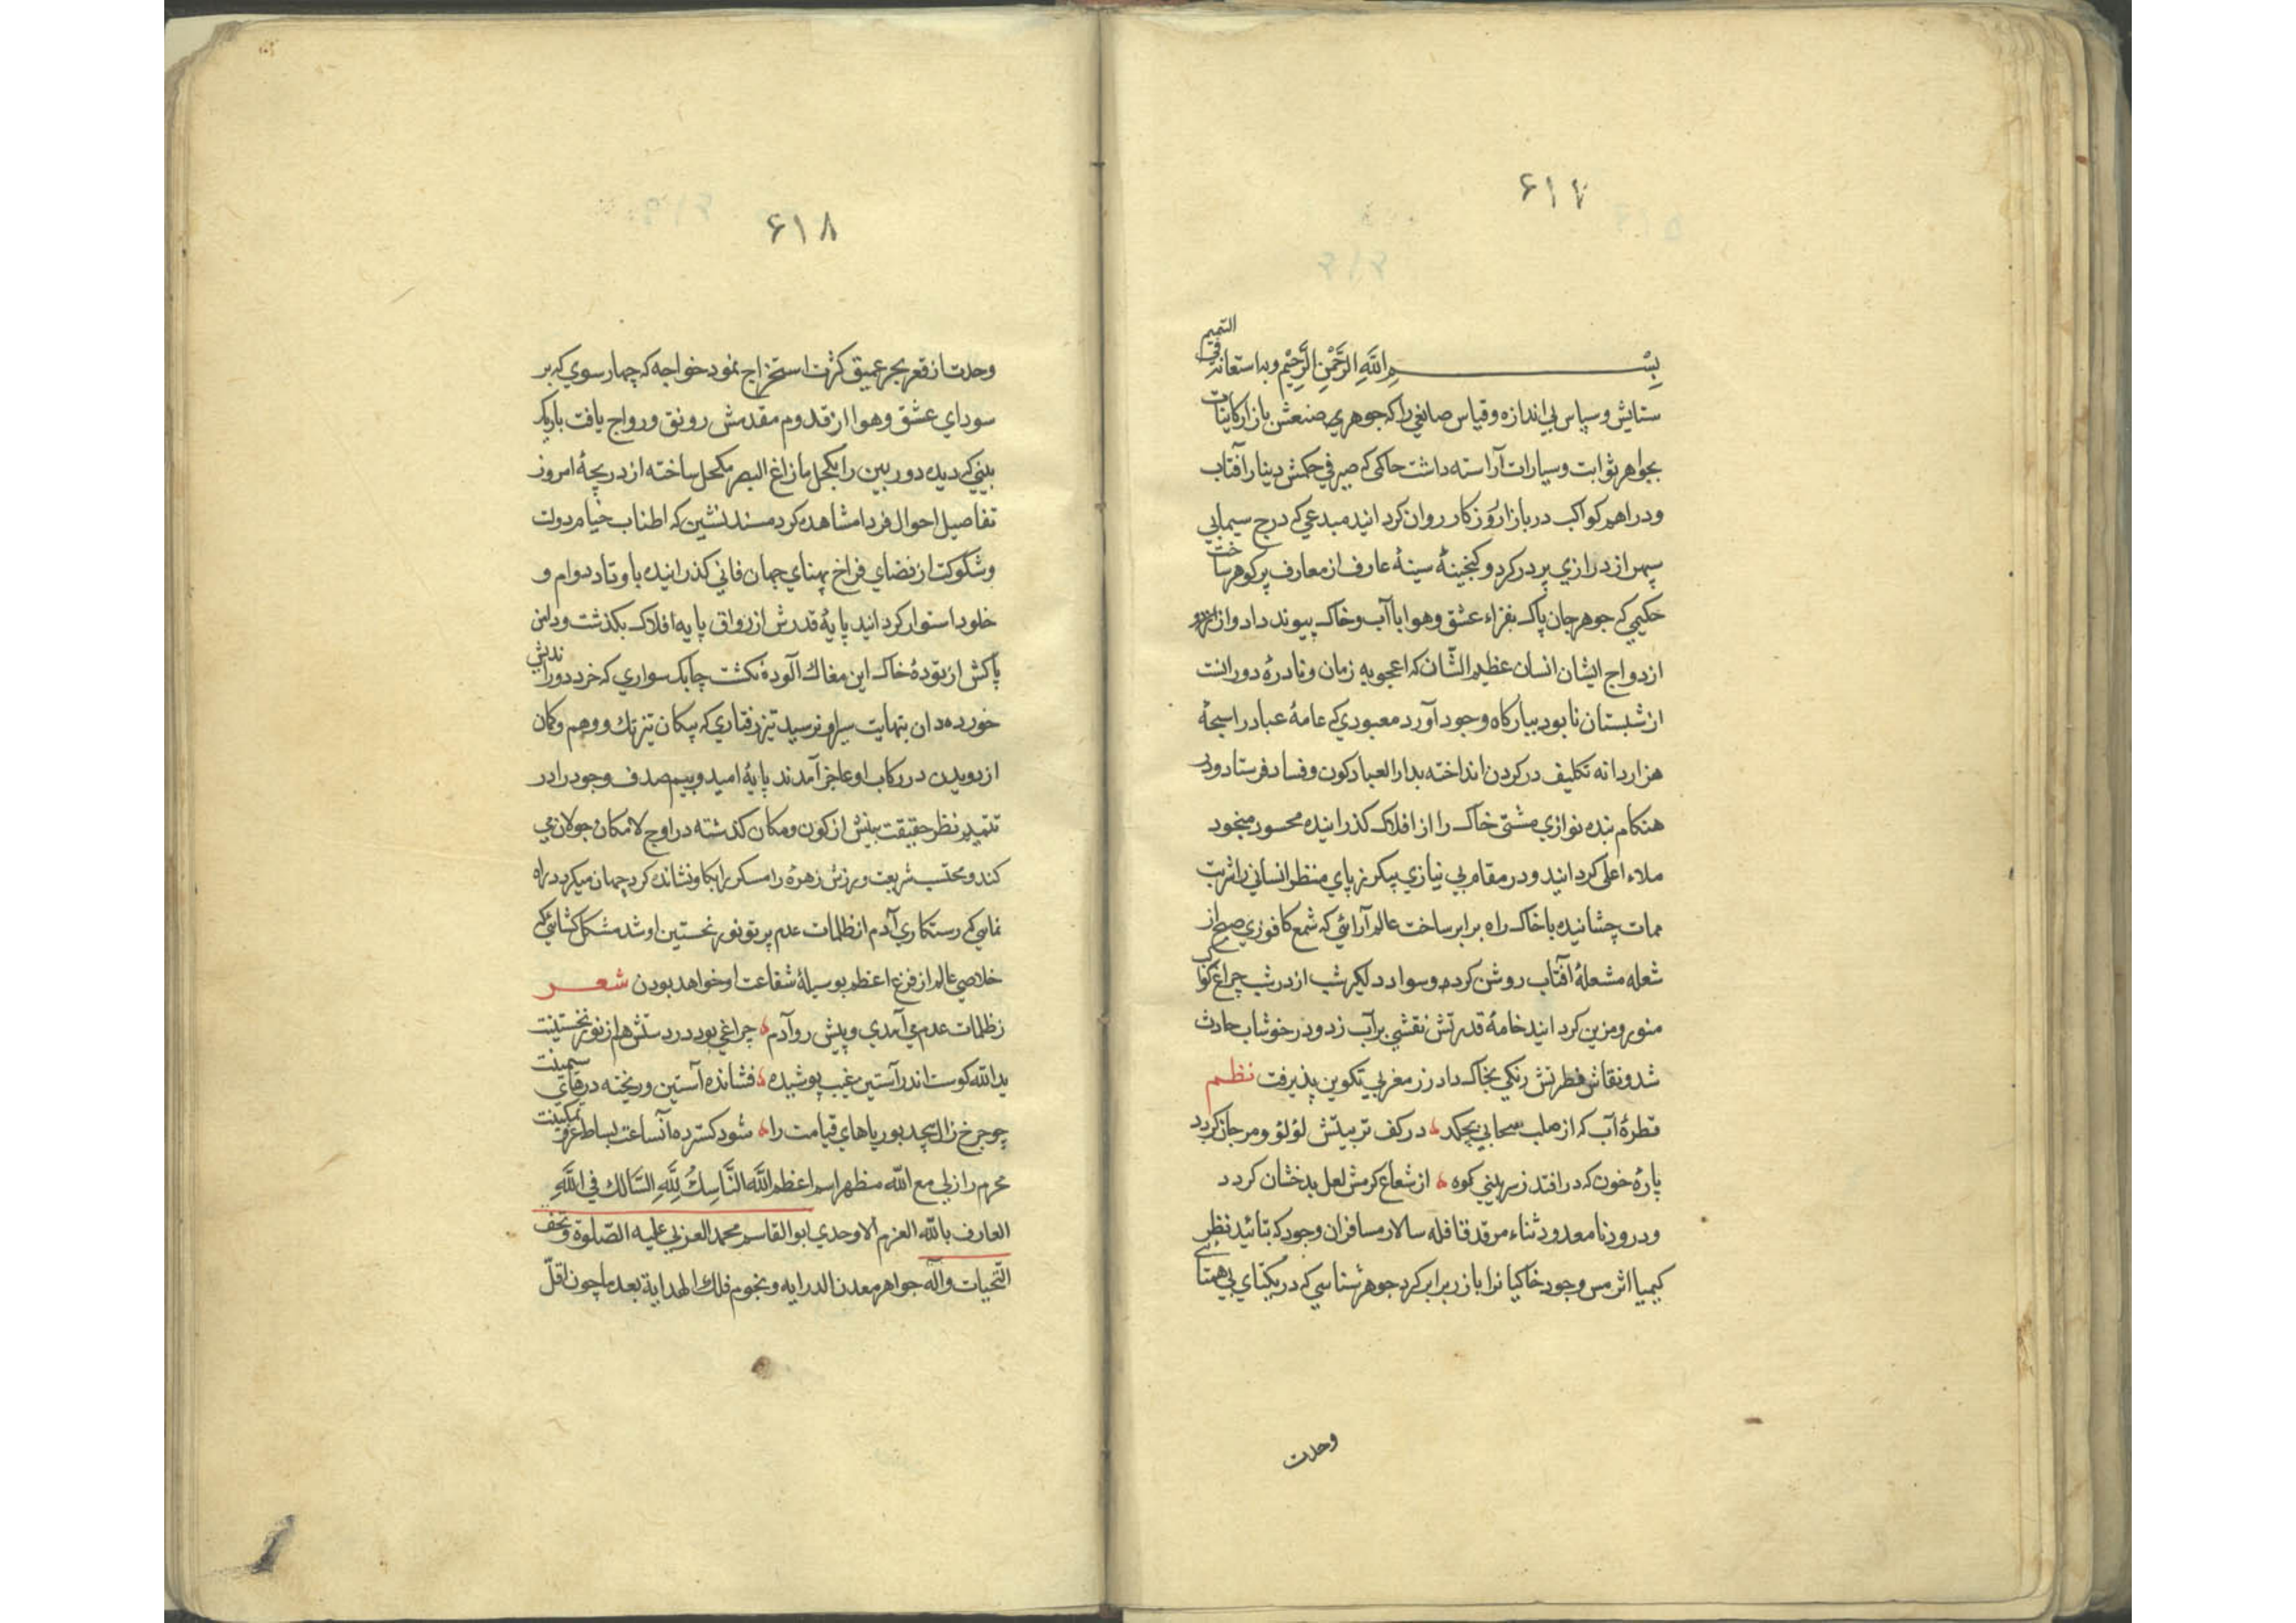 ۶۱۷
بسم الله الرحمن الرحیم وبه استعانة فی التمیم
ستایش و سپاس بی اندازه و قیاس صانعی را که جوهری صنعش بازار کاینات
بجواهر ثوابت و سیارات آراسته داشت حاکمی که صیرفی حکمش دینار آفتاب
و دراهم کواکب در بازار روزکار روان کردانید مبدعی که درج سیمابی
سپهر از دراری پر در کرد و کنجینهٔ سینهٔ عارف از معارف پر کوهر ساخت
حکیمی که جوهر جان پاک بفزاء عشق و هوا با آب و خاک پیوند داد و از
ازدواج ایشان انسان عظیم الشان که اعجوبه زمان و نادرهٔ دورانست
از شبستان نابود ببارکاه وجود آورد معبودی که عامهٔ عباد را سبحهٔ
هزار دانه تکلیف در کردن انداخته بدار العباد کون و فساد فرستاد و در
هنکام بنده نوازی مشتی خاک را از افلاک کذرانیده محسود
ملاء اعلی کردانید و در مقام بی نیازی پیکر زیبای منظر انسانی را شربت
ممات چشانیده با خاک راه برابر ساخت عالم آرائی که شمع کافوری صبح از
شعله مشعلهٔ آفتاب روشن کرد و سواد شب از در شب چراغ کواکب
منور و مزین کردانید خامهٔ قدرتش نقشی بر آب زد و در خوشاب حادث
شد و نقاش فطرتش رنکی بخاک داد زر مغربی تکوین پذیرفت نظم
قطرهٔ آب که از صلب سحابی بچکد در کف تربیتش لؤلؤ و مرجان کردد
پارهٔ خون که در افتد ز بینی کوه از شعاع کرمش لعل بدخشان کردد
و درود نامعدود ثناء مرقد قافله سالار مسافران وجود که بتائید نظر
کیمیا اثر مس وجود خاکیانرا با زر برابر کرد جوهر شناسی که در یکتای بی همتای
وحدت
۶۱۸
وحدت از قعر بحر عمیق کثرت استخراج نمود خواجه که چهار سوی که بر
سودای عشق و هوا از قدوم مقدمش رونق و رواج یافت باریک
بینی که دیده دوربین را بکحل مازاغ البصر مکحل ساخته از دریچهٔ امروز
تفاصیل احوال فردا مشاهده کرد مسند نشین که اطناب خیام دولت
و شکوکت از فضای فراخ پهنای جهان فانی کذرانیده باوتاد دوام و
خلود استوار کردانید پایهٔ قدرش از رواق پایه افلاک بکذشت و دامن
پاکش از تودهٔ خاک این مغاک آلوده نکشت چابک سواری که خرد دور اندیش
خورده دان بنهایت سیر او نرسید تیز رفتاری که پیکان تیزتک و وهم و کمان
از دویدن در رکاب او عاجز آمدند پایهٔ امید و بیم صدف وجود را در
یتیم نظر حقیقت بینش از کون و مکان کذشته در اوج لامکان جولان می
کند و محتسب شریعت ورزش زهرهٔ رامسکر را نشانده کرد جهان میکردد راه
نمایی که رستکاری آدم از ظلمات عدم پرتو نور نخستین او شد مشکل کشائی که
خلاصی عالم از فزع اعظم بوسیلهٔ شفاعت او خواهد بودن شعر
ز ظلمات عدم می آمدی و پیش رو آدم چراغی بود در دستش هم از نور نخستینت
ید الله کوست اندر آستین غیب پوشیده فشانده آستین و ریخته در پای سیمینت
چو چرخ زال پیچد بوریاهای قیامت را شود کسترده آنساعت بساط عز و تمکینت
محرم راز لی مع الله مظهر اسم اعظم الله الناسک لله السالک فی الله
العارف بالله العزم الاوحدی ابوالقاسم محمد العربی علیه الصلوة و تحف
التحیات وآله جواهر معدن الدرایه ونجوم فلک الهدایة بعد ما چون اقلّ